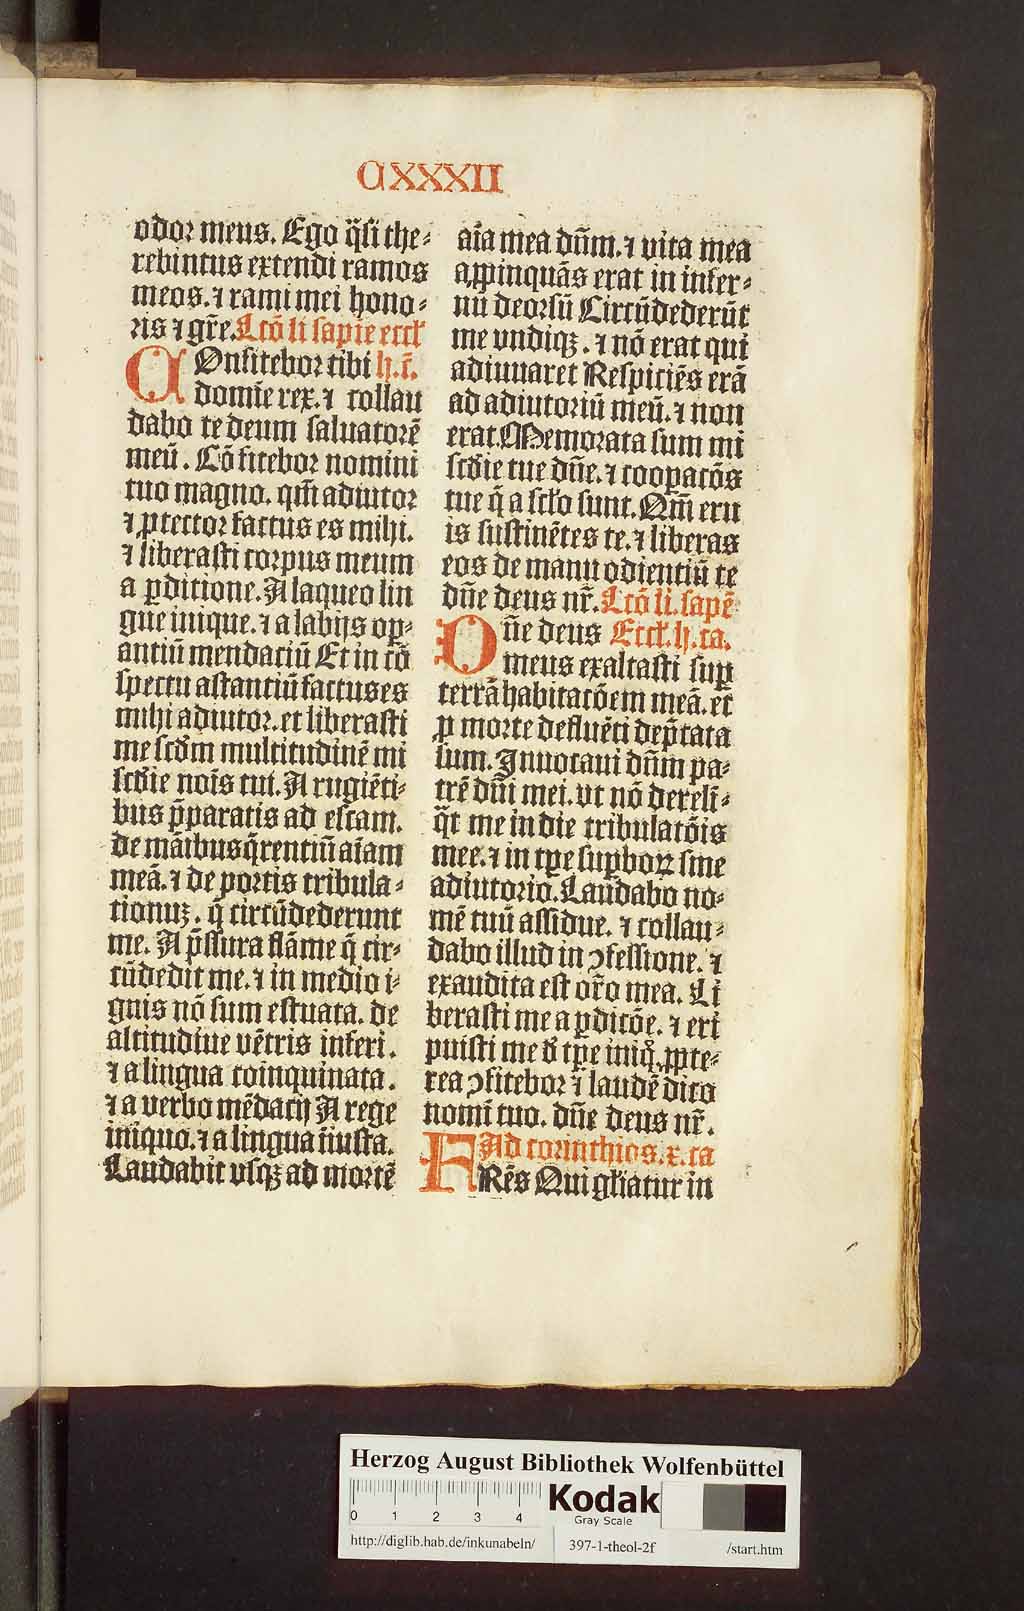 CXXXII
odor meus. Ego q̃si the⸗
rebintus extendi ramos
meos. ⁊ rami mei hono⸗
ris ⁊ gr̃e. Lcõ li sapie eccł
COnfitebor tibi h. r̃.
domĩe rex. ⁊ collau
dabo te deum saluatorẽ
meũ. Cõfitebor nomini
tuo magno. qm̃ adiutor
⁊ ꝓtector factus es mihi.
⁊ liberasti corpus meum
a ꝑditione. A laqueo lin
gue inique. ⁊ a labijs oꝑ⸗
antiũ mendaciũ Et in cõ
spectu astantiũ factus es
mihi adiutor. et liberasti
me scd̃m multitudinẽ mi
sc̃die noĩs tui. A rugiẽti⸗
bus p̃paratis ad escam.
de mãibus q̃rentiũ aĩam
meã. ⁊ de portis tribula⸗
tionuꝫ. q̃ circũdederunt
me. A p̃ssura flãme q̃ cir⸗
cũdedit me. ⁊ in medio i⸗
gnis nõ sum estuata. de
altitudine vẽtris inferi.
⁊ a lingua coinquinata.
⁊ a verbo mẽdacij A rege
iniquo. ⁊ a lingua ĩiusta.
Laudabit vsqꝫ ad mortẽ
aĩa mea dñm. ⁊ vita mea
aꝓpinquãs erat in infer⸗
nũ deorsũ Circũdederũt
me vndiqꝫ. ⁊ nõ erat qui
adiuuaret Respiciẽs erã
ad adiutoriũ meũ. ⁊ non
erat. Memorata sum mi
sc̃die tue dñe. ⁊ cooꝑacõs
tue q̃ a scło sunt. Qm̃ eru
is sustinẽtes te. ⁊ liberas
eos de manu odientiũ te
dñe deus nr̃. Lcõ li. sapẽ
Dñe deus Eccł. h. ca.
meus exaltasti suꝑ
terrã habitacõem meã. et
ꝓ morte defluẽti dep̃cata
sum. Inuocaui dñm pa⸗
trẽ dñi mei. vt nõ dereli̅⸗
q̃t me in die tribulatõis
mee. ⁊ in tꝑe suꝑborꝝ sine
adiutorio. Laudabo no⸗
mẽ tuũ assidue. ⁊ collau⸗
dabo illud in ꝯfessione. ⁊
exaudita est or̃o mea. Li
berasti me a ꝑdicõe. ⁊ eri
puisti me d̃ tꝑe iniq̊. ꝓpte⸗
rea ꝯfitebor ⁊ laudẽ dicã
nomĩ tuo. dñe deus nr̃.
Ad corinthios. x. ca
FRẽs Qui głiatur in
Herzog August Bibliothek Wolfenbüttel
0 1 2 3 4
Kodak
Gray Scale
http://diglib.hab.de/inkunabeln/ 397-1-theol-2f /start.htm